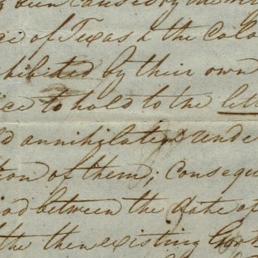 been caused by the
of Texas & the Colo
hibited by their own
to hold to the
annihilation unde
tion of them; Consequ
iod between the date of
the then existing